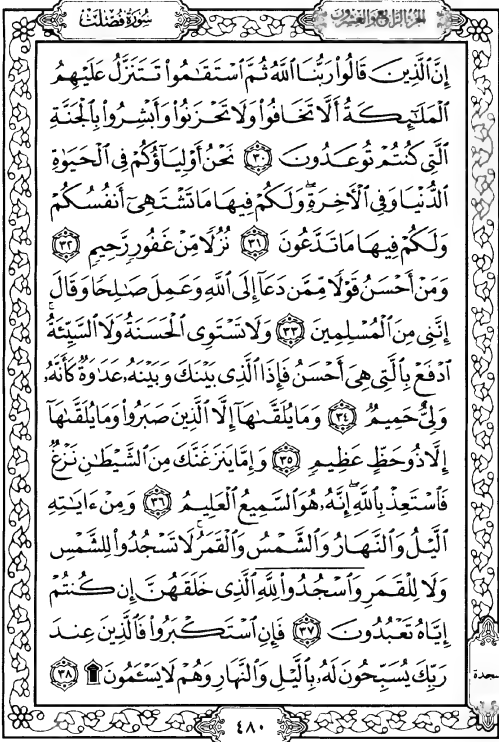 سُورَةُ فُصِّلَتْ الجُزءُ الرَّابِعُ وَالعِشْرُونَ
إِنَّ ٱلَّذِينَ قَالُوا۟ رَبُّنَا ٱللَّهُ ثُمَّ ٱسْتَقَٰمُوا۟ تَتَنَزَّلُ عَلَيْهِمُ
ٱلْمَلَٰٓئِكَةُ أَلَّا تَخَافُوا۟ وَلَا تَحْزَنُوا۟ وَأَبْشِرُوا۟ بِٱلْجَنَّةِ
ٱلَّتِى كُنتُمْ تُوعَدُونَ ٣٠ نَحْنُ أَوْلِيَآؤُكُمْ فِى ٱلْحَيَوٰةِ
ٱلدُّنْيَا وَفِى ٱلْءَاخِرَةِ ۖ وَلَكُمْ فِيهَا مَا تَشْتَهِىٓ أَنفُسُكُمْ
وَلَكُمْ فِيهَا مَا تَدَّعُونَ ٣١ نُزُلًا مِّنْ غَفُورٍ رَّحِيمٍ ٣٢
وَمَنْ أَحْسَنُ قَوْلًا مِّمَّن دَعَآ إِلَى ٱللَّهِ وَعَمِلَ صَٰلِحًا وَقَالَ
إِنَّنِى مِنَ ٱلْمُسْلِمِينَ ٣٣ وَلَا تَسْتَوِى ٱلْحَسَنَةُ وَلَا ٱلسَّيِّئَةُ ۚ
ٱدْفَعْ بِٱلَّتِى هِىَ أَحْسَنُ فَإِذَا ٱلَّذِى بَيْنَكَ وَبَيْنَهُۥ عَدَٰوَةٌ كَأَنَّهُۥ
وَلِىٌّ حَمِيمٌ ٣٤ وَمَا يُلَقَّىٰهَآ إِلَّا ٱلَّذِينَ صَبَرُوا۟ وَمَا يُلَقَّىٰهَآ
إِلَّا ذُو حَظٍّ عَظِيمٍ ٣٥ وَإِمَّا يَنزَغَنَّكَ مِنَ ٱلشَّيْطَٰنِ نَزْغٌ
فَٱسْتَعِذْ بِٱللَّهِ ۖ إِنَّهُۥ هُوَ ٱلسَّمِيعُ ٱلْعَلِيمُ ٣٦ وَمِنْ ءَايَٰتِهِ
ٱلَّيْلُ وَٱلنَّهَارُ وَٱلشَّمْسُ وَٱلْقَمَرُ ۚ لَا تَسْجُدُوا۟ لِلشَّمْسِ
وَلَا لِلْقَمَرِ وَٱسْجُدُوا۟ لِلَّهِ ٱلَّذِى خَلَقَهُنَّ إِن كُنتُمْ
إِيَّاهُ تَعْبُدُونَ ٣٧ فَإِنِ ٱسْتَكْبَرُوا۟ فَٱلَّذِينَ عِندَ
رَبِّكَ يُسَبِّحُونَ لَهُۥ بِٱلَّيْلِ وَٱلنَّهَارِ وَهُمْ لَا يَسْـَٔمُونَ ۩ ٣٨
سجدة
٤٨٠